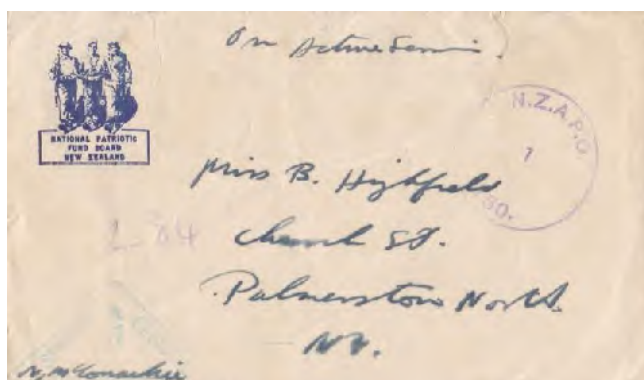 On Active Service
NATIONAL PATRIOTIC
FUND BOARD
NEW ZEALAND
N.Z.A.P.O
1
Miss B. Highfield
Church St.
Palmerston North
N.Z.
N. McConachie